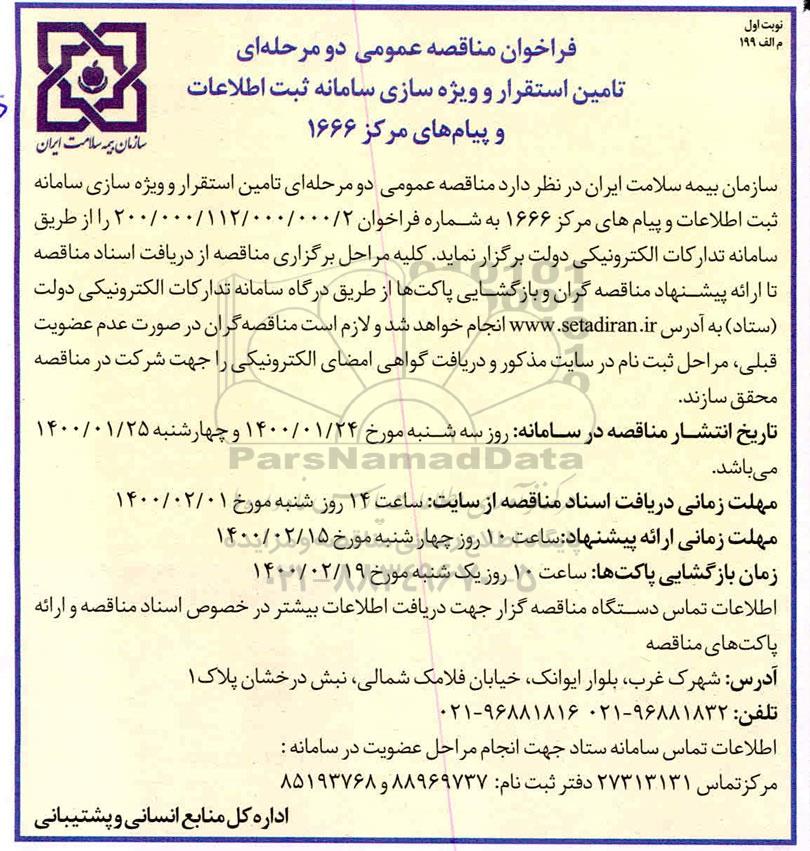 نوبت اول
م الف ۱۹۹
فراخوان مناقصه عمومی دو مرحله‌ای
تامین استقرار و ویژه سازی سامانه ثبت اطلاعات
و پیام‌های مرکز ۱۶۶۶
سازمان بیمه سلامت ایران
سازمان بیمه سلامت ایران در نظر دارد مناقصه عمومی دو مرحله‌ای تامین استقرار و ویژه سازی سامانه
ثبت اطلاعات و پیام های مرکز ۱۶۶۶ به شماره فراخوان ۲۰۰/۰۰۰/۱۱۲/۰۰۰/۰۰۰/۲ را از طریق
سامانه تدارکات الکترونیکی دولت برگزار نماید. کلیه مراحل برگزاری مناقصه از دریافت اسناد مناقصه
تا ارائه پیشنهاد مناقصه گران و بازگشایی پاکت‌ها از طریق درگاه سامانه تدارکات الکترونیکی دولت
(ستاد) به آدرس www.setadiran.ir انجام خواهد شد و لازم است مناقصه‌گران در صورت عدم عضویت
قبلی، مراحل ثبت نام در سایت مذکور و دریافت گواهی امضای الکترونیکی را جهت شرکت در مناقصه
محقق سازند.
تاریخ انتشار مناقصه در سامانه: روز سه شنبه مورخ ۱۴۰۰/۰۱/۲۴ و چهارشنبه ۱۴۰۰/۰۱/۲۵
ParsNamadData
می‌باشد.
مهلت زمانی دریافت اسناد مناقصه از سایت: ساعت ۱۴ روز شنبه مورخ ۱۴۰۰/۰۲/۰۱
مهلت زمانی ارائه پیشنهاد: ساعت ۱۰ روز چهار شنبه مورخ ۱۴۰۰/۰۲/۱۵
زمان بازگشایی پاکت‌ها: ساعت ۱۰ روز یک شنبه مورخ ۱۴۰۰/۰۲/۱۹
۰۲۱-۸۸۳۴۹۶۷۰-۵
اطلاعات تماس دستگاه مناقصه گزار جهت دریافت اطلاعات بیشتر در خصوص اسناد مناقصه و ارائه
پاکت‌های مناقصه
آدرس: شهرک غرب، بلوار ایوانک، خیابان فلامک شمالی، نبش درخشان پلاک۱
تلفن: ۹۶۸۸۱۸۳۲-۰۲۱ ۹۶۸۸۱۸۱۶-۰۲۱
اطلاعات تماس سامانه ستاد جهت انجام مراحل عضویت در سامانه :
مرکزتماس ۲۷۳۱۳۱۳۱ دفتر ثبت نام: ۸۸۹۶۹۷۳۷ و ۸۵۱۹۳۷۶۸
اداره کل منابع انسانی و پشتیبانی